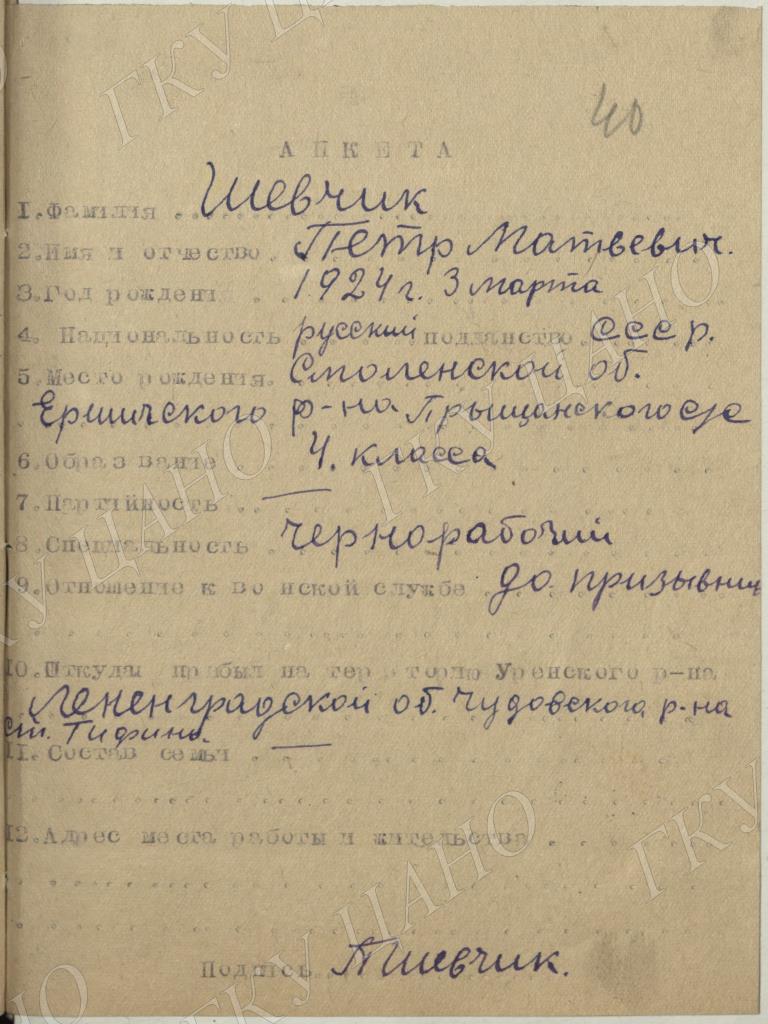 40
АНКЕТА
1.Фамилия Шевчик
2.Имя и отчество Пётр Матвеевич.
3.Год рождени 1924 г. 3 марта
4. Национальность русский подданство СССР.
5.Место рождения Смоленской об.
Ершичского р-на Прыщанского с/с
6.Образ вание 4. класса
7.Партийность —
8.Специальность чернорабочий
9.Отношение к во нской службе до призывник
10.Откуда прибыл на тер торию Уренского р-на
Лененградской об. Чудовского р-на
ст.
11.Состав семьи —
12.Адрес места работы и жительства
Подпись ПШевчик.
ГКУ ЦАНО